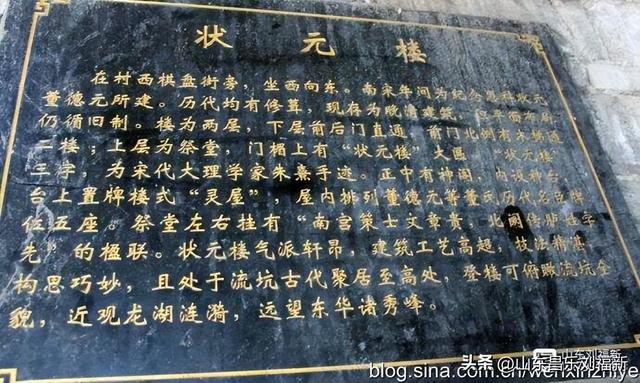 状元楼
在村西棋盘街旁，坐西向东。南宋年间为纪念恩科状元
董德元所建。历代均有修葺，现存为晚清建筑，平面布局
仍循旧制。楼为两层，下层前后门直通，前门北侧有木梯通
二楼；上层为祭堂，门楣上有“状元楼”大匾，“状元楼”
三字，为宋代大理学家朱熹手迹。正中有神阁，内设神台，
台上置牌楼式“灵屋”，屋内排列董德元等董氏历代名臣牌
位五座。祭堂左右挂有“南宫策士文章贵，北阙传胪姓字
先”的楹联。状元楼气派轩昂，建筑工艺高超，技法精湛，
构思巧妙，且处于流坑古代聚居至高处，登楼可俯瞰流坑全
貌，近观龙湖涟漪，远望东华诸秀峰。
头条 @山东昌乐刘福新
blog.sina.com.cn/wenxinzhiye